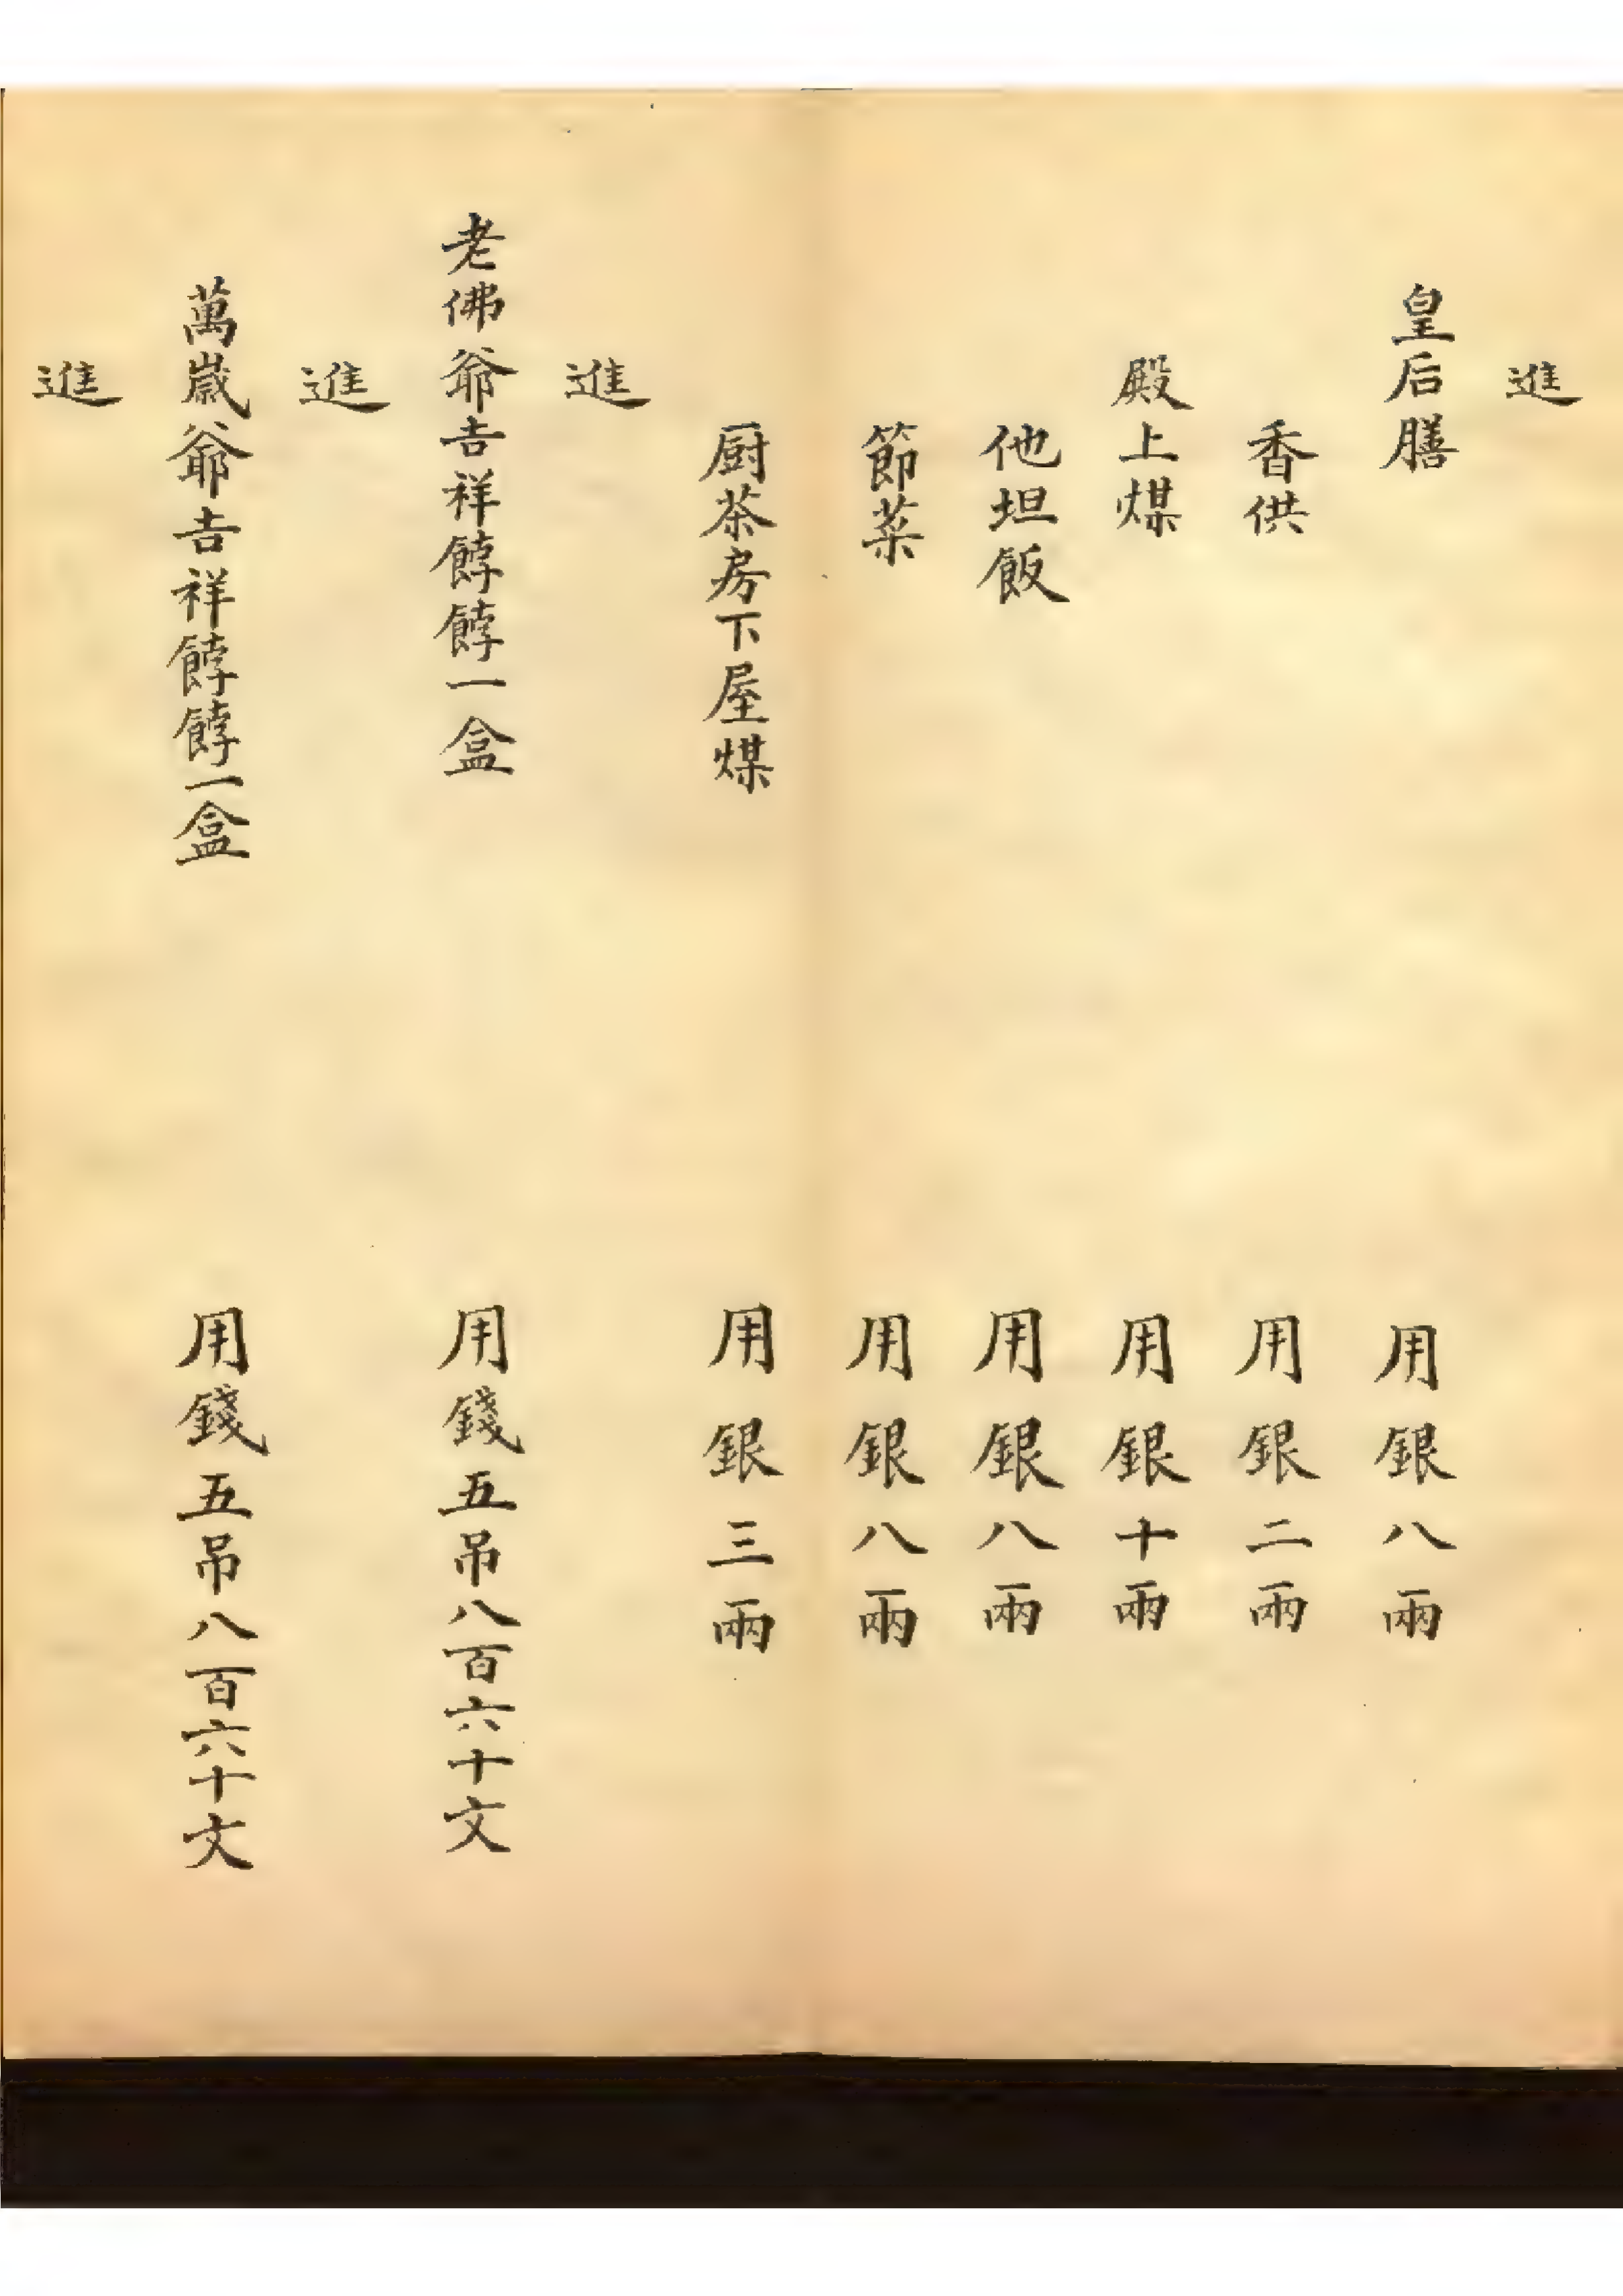 進
皇后膳 用銀八兩
香供 用銀二兩
殿上煤 用銀十兩
他坦飯 用銀八兩
節菜 用銀八兩
厨茶房下屋煤 用銀三兩
進
老佛爺吉祥餑餑一盒 用錢五吊八百六十文
進
萬歲爺吉祥餑餑一盒 用錢五吊八百六十文
進